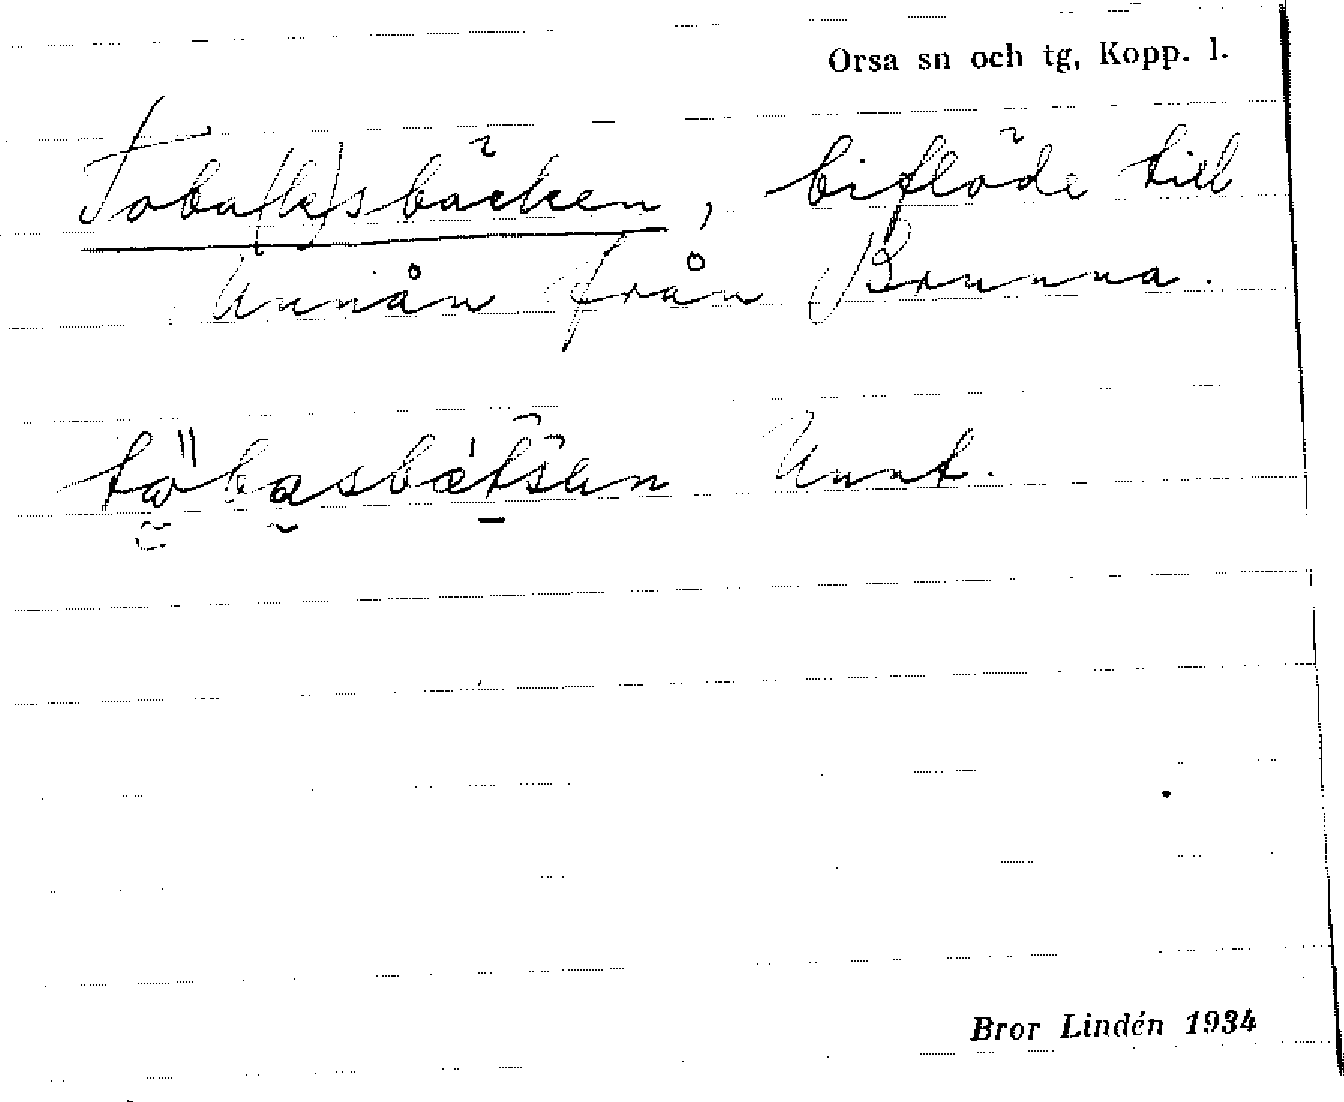 Orsa sn och tg, Kopp. l.
Toba(k)sbäcken, biflöde till
Unnån från Brunna.
Unnt.
Bror Lindén 1934